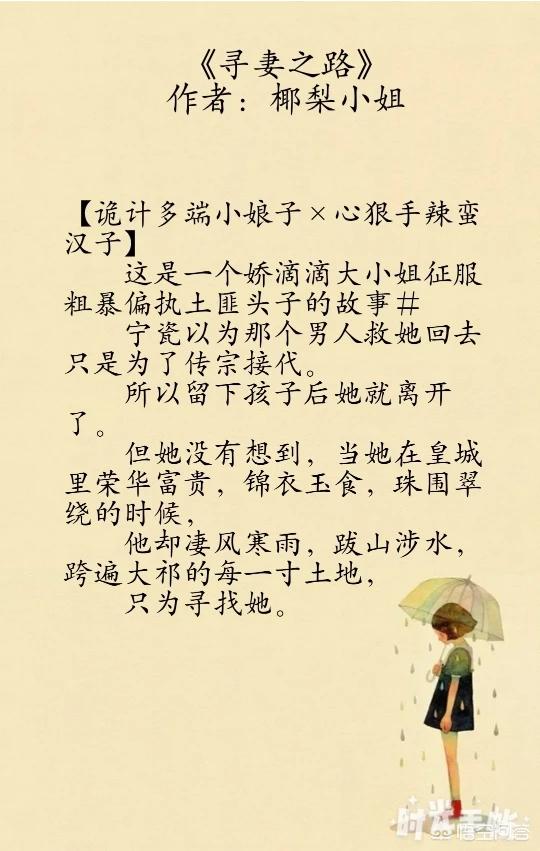 《寻妻之路》
作者：椰梨小姐
【诡计多端小娘子×心狠手辣蛮
汉子】
这是一个娇滴滴大小姐征服
粗暴偏执土匪头子的故事#
宁瓷以为那个男人救她回去
只是为了传宗接代。
所以留下孩子后她就离开
了。
但她没有想到，当她在皇城
里荣华富贵，锦衣玉食，珠围翠
绕的时候，
他却凄风寒雨，跋山涉水，
跨遍大祁的每一寸土地，
只为寻找她。
时光手帐
悟空问答